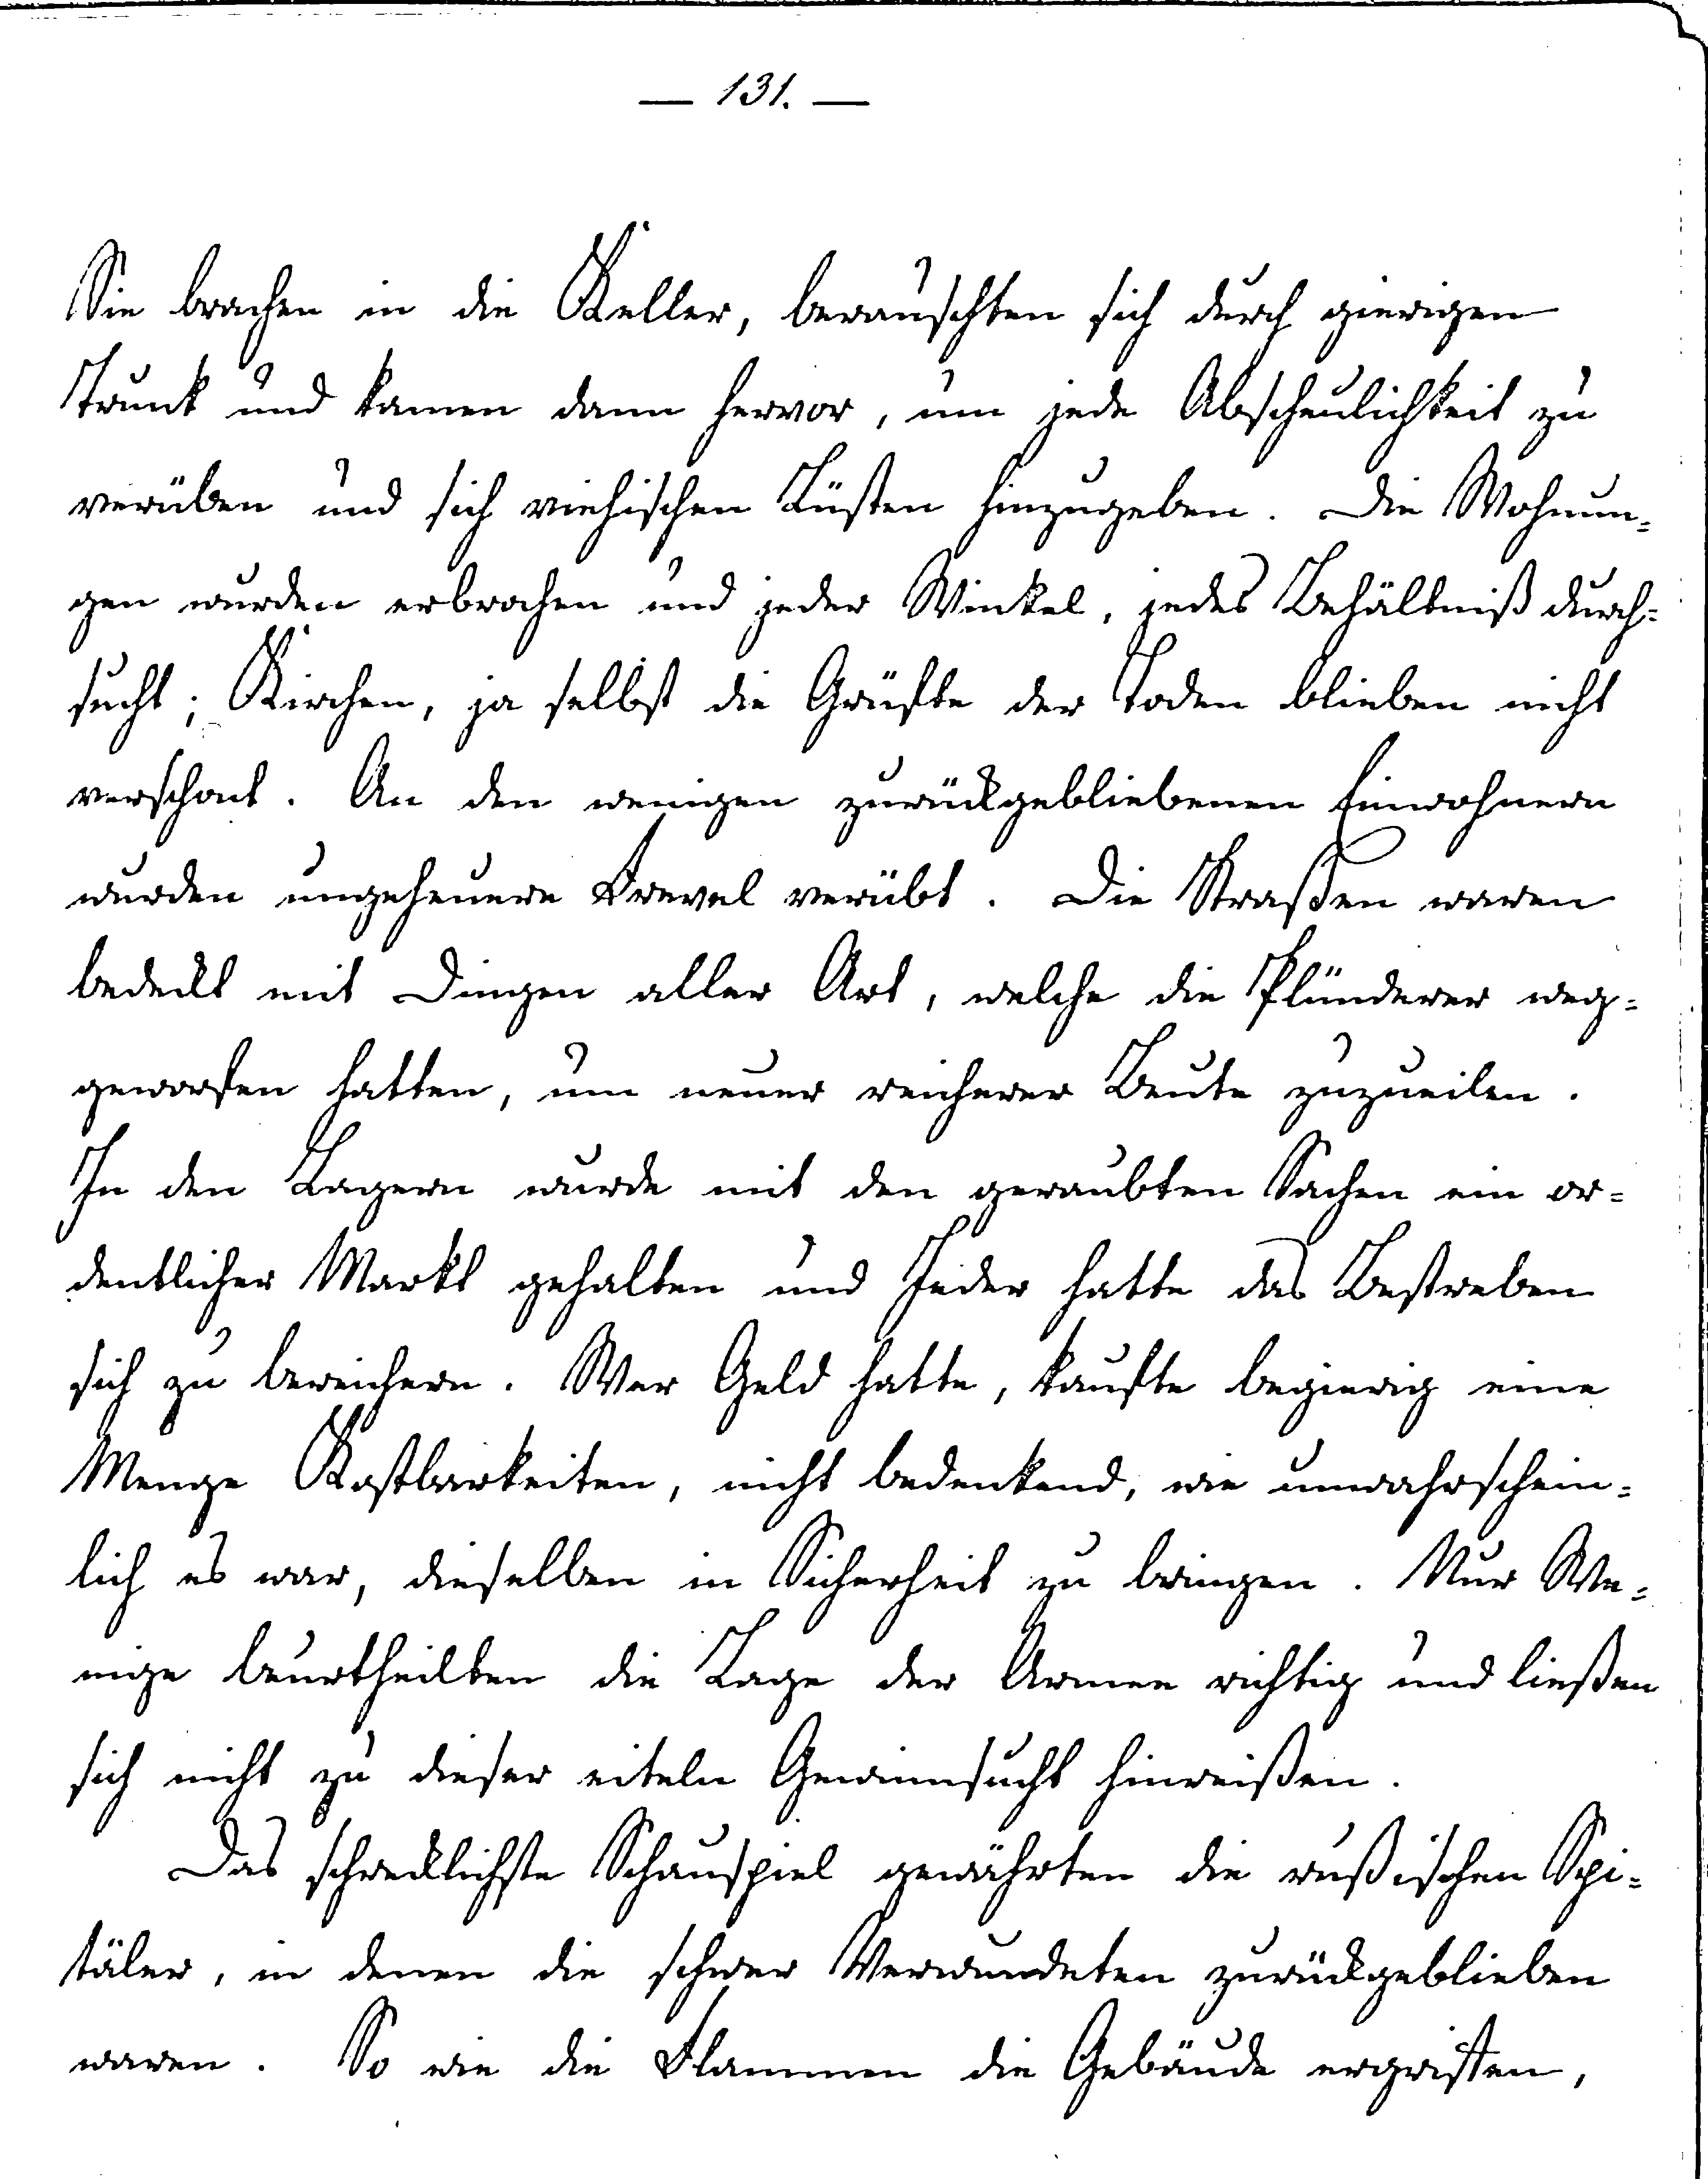 — 131. —
Sie brachen in die Keller, berauschten sich durch gierigen
Trunk und kamen dann hervor, um jede Abscheulichkeit zu
verüben und sich viehischen Lüsten hinzugeben. Die Wohnun=
gen wurden erbrochen und jeder Winkel, jedes Behältniß durch=
sucht; Kirchen, ja selbst die Grüfte der Toden blieben nicht
verschont. An den wenigen zurückgebliebenen Einwohnern
wurden ungeheuere Frevel verübt. Die Straßen waren
bedeckt mit Dingen aller Art, welche die Plünderer weg=
geworfen hatten, um neuer reicherer Beute zuzueilen.
In den Lagern wurde mit den geraubten Sachen ein or=
dentlicher Markt gehalten und Jeder hatte das Bestreben
sich zu bereichern. Wer Geld hatte, kaufte begierig eine
Menge Kostbarkeiten, nicht bedenkend, wie unwahrschein=
lich es war, dieselben in Sicherheit zu bringen. Nur We=
nige beurtheilten die Lage der Armee richtig und ließen
sich nicht zu dieser eiteln Gewinnsucht hinreißen.
Das schrecklichste Schauspiel gewährten die rußischen Spi=
täler, in denen die schwer Verwundeten zurückgeblieben
waren. So wie die Flammen die Gebäude ergriffen,